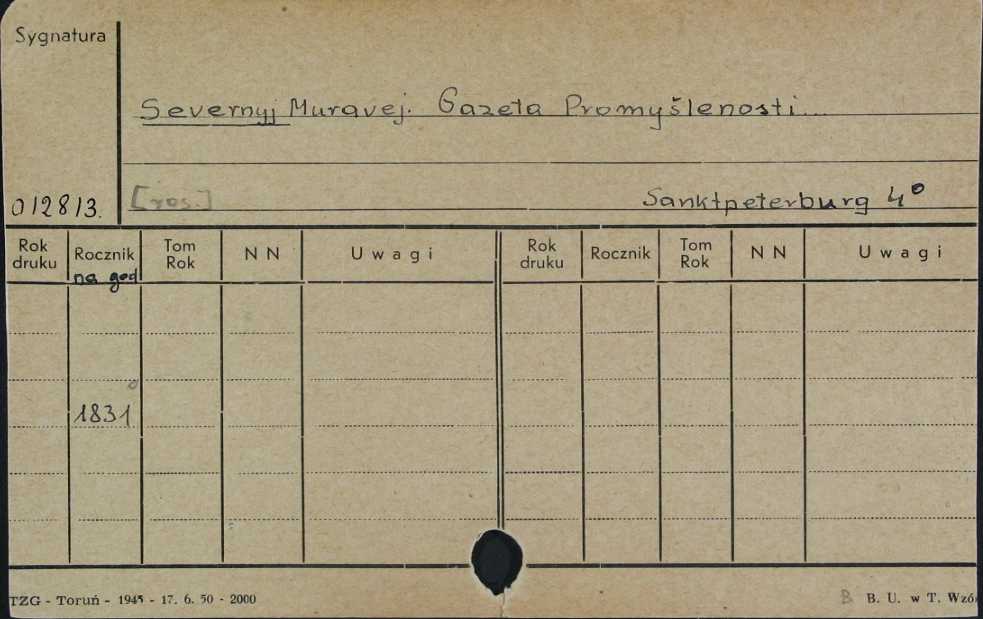 Sygnatura
Severnyj Muravej. Gazeta Promyšlenosti...
012813.
[ros.]
Sanktpeterburg 4°
Rok druku Rocznik na god Tom Rok N N Uwagi Rok druku Rocznik Tom Rok N N Uwagi
1831
TZG - Toruń - 1945 - 17. 6. 50 - 2000
B B. U. w T. Wzó